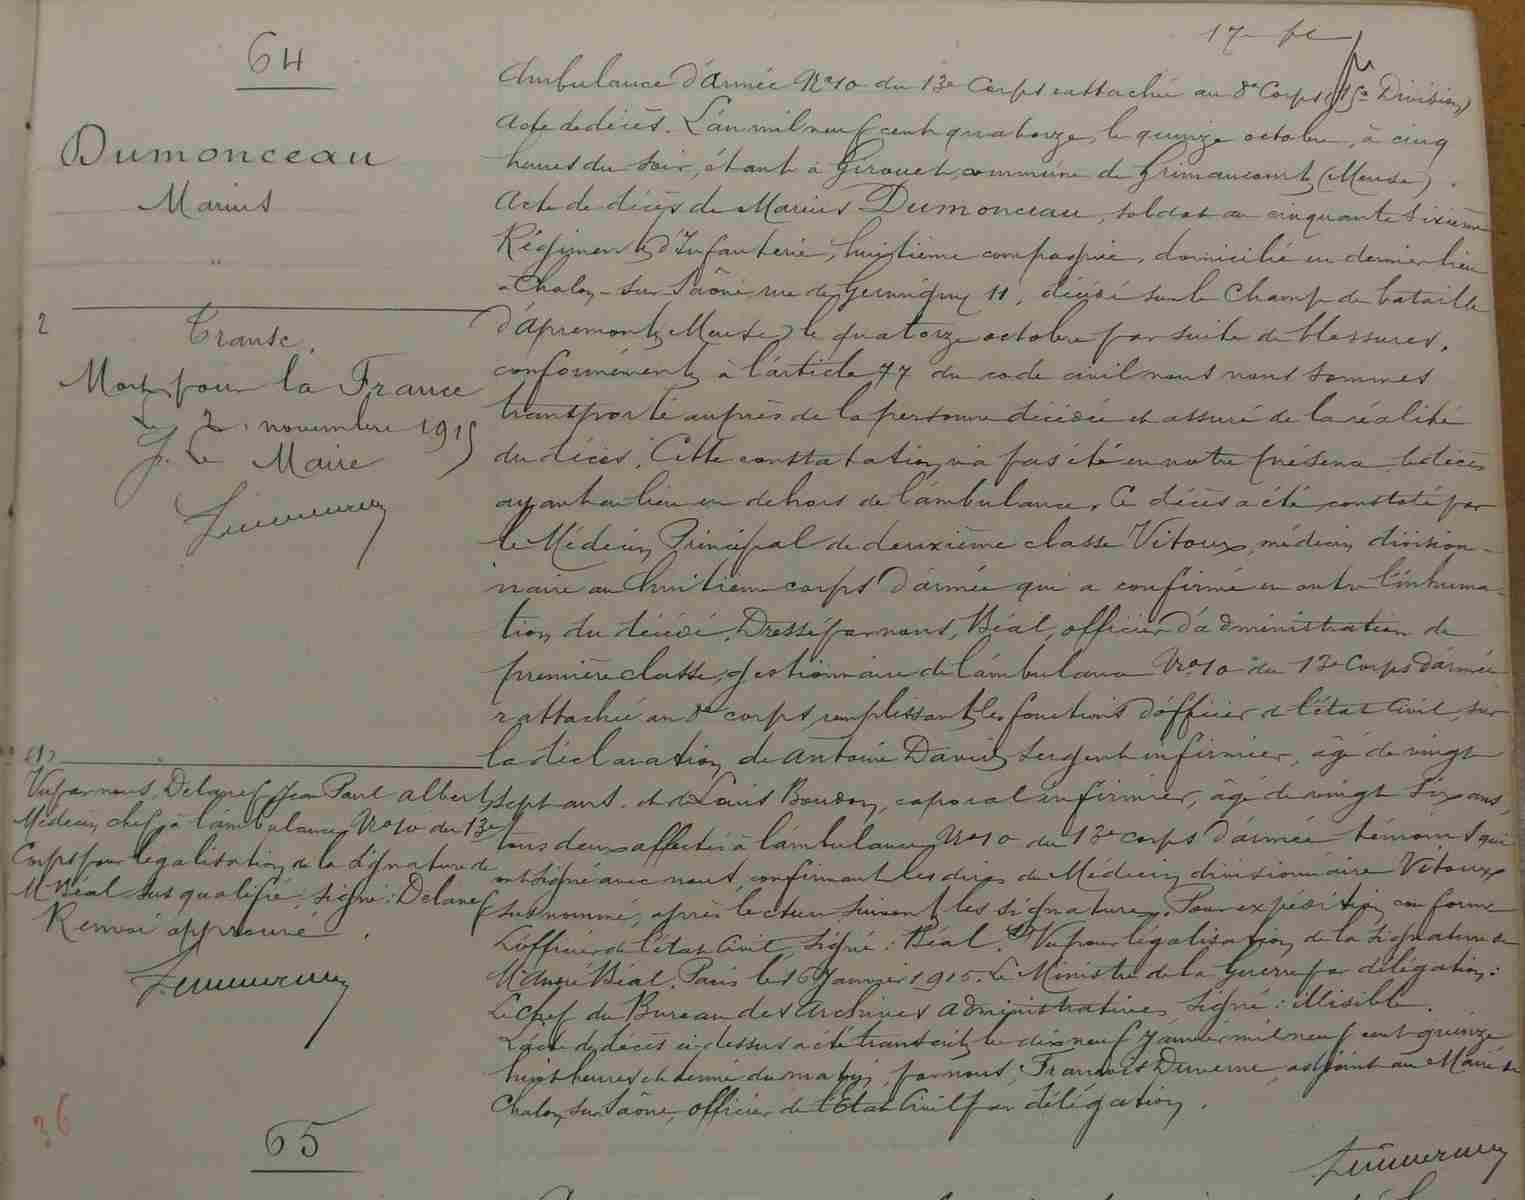 64
Dumonceau
Marius
"
2
Transc.
Mort pour la France
le 2 novembre 1915
Le Maire
(1)
Vu par nous, Delanef Jean Paul Albert
Médecin chef à l'ambulance No 10 du 13e
Corps pour légalisation de la signature de
M Béal sus qualifié; signé: Delanef
Renvoi approuvé.
36
65
17
Ambulance d'Armée No 10 du 13e Corps rattachée au 8e Corps (15e Division)
Acte de décès. L'an mil neuf cent quatorze, le quinze octobre, à cinq
heures du soir, étant à Girouet, commune de Grimaucourt (Meuse).
Acte de décès de Marius Dumonceau, soldat au cinquante sixième
Régiment d'Infanterie, huitième compagnie, domicilié en dernier lieu
à Chalon-sur-Saône rue de 11, décédé sur le Champ de bataille
d'Apremont (Meuse) le quatorze octobre par suite de blessures,
conformément à l'article 77 du code civil nous nous sommes
transporté auprès de la personne décédée et assuré de la réalité
du décès. Cette constatation n'a pas été en notre présence le décès
ayant eu lieu en dehors de l'ambulance. Ce décès a été constaté par
le Médecin Principal de deuxième classe Vitoux, médecin division-
naire au huitième corps d'armée qui a confirmé en outre l'inhuma-
tion du décédé. Dressé par nous, Béal, officier d'administration de
première classe, gestionnaire de l'ambulance No 10 du 13e Corps d'armée
rattachée au 8e corps, remplissant les fonctions d'officier de l'état civil, sur
la déclaration de Antoine David sergent infirmier, âgé de vingt
sept ans et de Louis Boudon, caporal infirmier, âgé de vingt six ans,
tous deux affectés à l'ambulance No 10 du 13e corps d'armée témoins qui
ont signé avec nous, confirmant les dires du Médecin divisionnaire Vitoux
sus nommé, après lecture. Suivent les signatures. Pour expédition conforme
L'officier de l'état civil, signé: Béal. (1) Vu pour légalisation de la signature de
M. André Béal. Paris le 16 Janvier 1915. Le Ministre de la Guerre par délégation:
Le Chef du Bureau des Archives administratives signé: illisible.
L'acte de décès ci-dessus a été transcrit le dix neuf Janvier mil neuf cent quinze
huit heures et demie du matin, par nous, François Duverne, adjoint au Maire de
Chalon sur Saône, officier de l'Etat Civil par délégation.